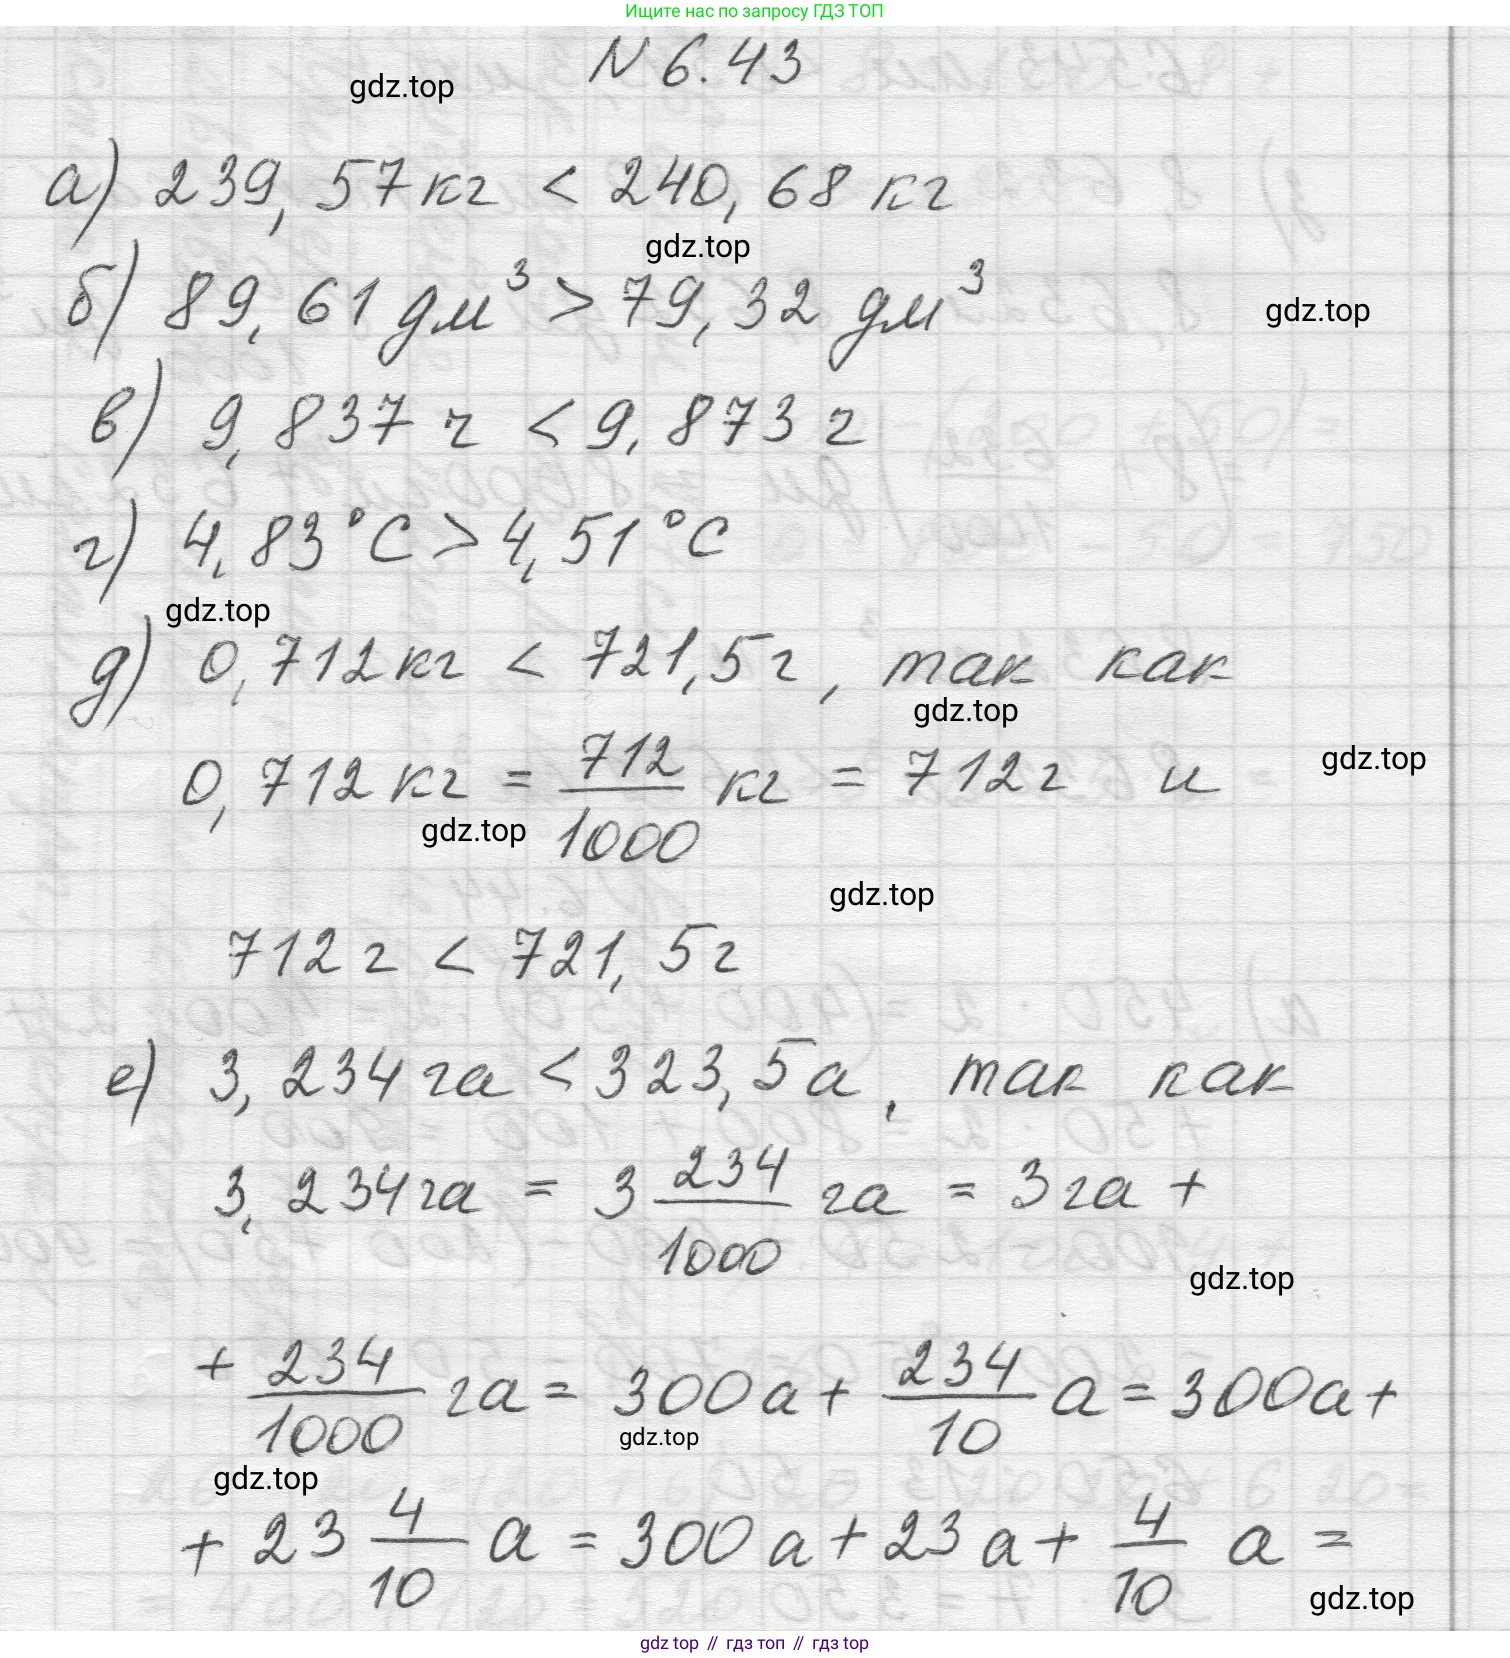 Ищите нас по запросу ГДЗ ТОП
N 6.43
gdz.top
а) 239,57 кг < 240,68 кг
gdz.top
б) 89,61 дм³ > 79,32 дм³
gdz.top
в) 9,837 г < 9,873 г
г) 4,83°С > 4,51°С
gdz.top
д) 0,712 кг < 721,5 г, так как
gdz.top
0,712 кг = 712/1000 кг = 712 г и
gdz.top
gdz.top
gdz.top
712 г < 721,5 г
е) 3,234 га < 323,5 а, так как
3,234 га = 3 234/1000 га = 3 га +
gdz.top
+ 234/1000 га = 300 а + 234/10 а = 300 а +
gdz.top
gdz.top
+ 23 4/10 а = 300 а + 23 а + 4/10 а =
gdz.top
gdz top // гдз топ // гдз top